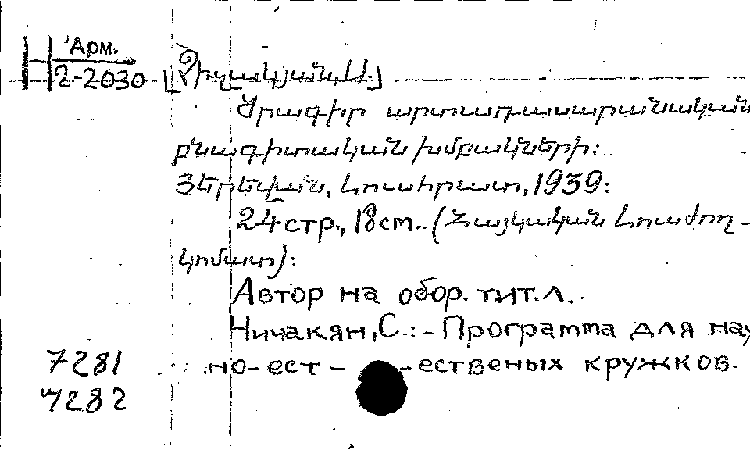 Арм.
2-2030 [Չիչակյան, Ս.]
Ծրագիր արտադասարանական
բնագիտական խմբակների:
Յերեվան, Լուսհրատ, 1939:
24 стр., 18 см. (Հայկական Լուսժող-
կոմատ):
Автор на обор. тит. л.
Ничакян, С.: - Программа для нау
но-ест - -ественых кружков.
7281
7282